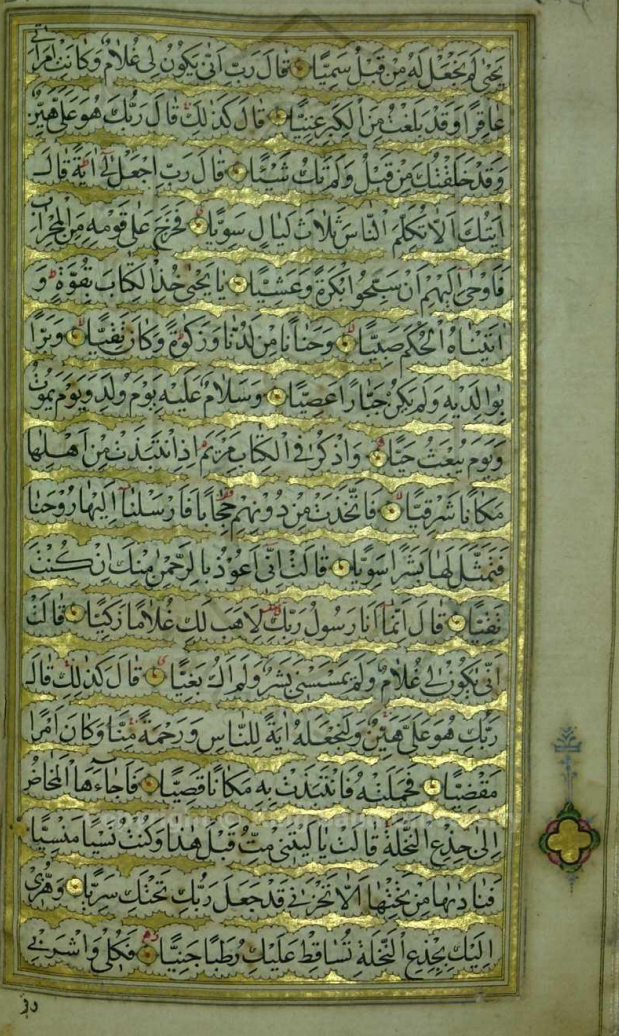 يَحْيٰى لَمْ نَجْعَلْ لَهُ مِنْ قَبْلُ سَمِيًّا قَالَ رَبِّ اَنّٰى يَكُونُ لِى غُلَامٌ وَكَانَتِ امْرَاَتِى
عَاقِرًا وَقَدْ بَلَغْتُ مِنَ الْكِبَرِ عِتِيًّا قَالَ كَذٰلِكَ قَالَ رَبُّكَ هُوَ عَلَىَّ هَيِّنٌ
وَقَدْ خَلَقْتُكَ مِنْ قَبْلُ وَلَمْ تَكُ شَيْئًا قَالَ رَبِّ اجْعَلْ لِى اٰيَةً قَالَ
اٰيَتُكَ اَلَّا تُكَلِّمَ النَّاسَ ثَلَاثَ لَيَالٍ سَوِيًّا فَخَرَجَ عَلٰى قَوْمِهِ مِنَ الْمِحْرَابِ
فَاَوْحٰى اِلَيْهِمْ اَنْ سَبِّحُوا بُكْرَةً وَعَشِيًّا يَا يَحْيٰى خُذِ الْكِتَابَ بِقُوَّةٍ وَ
اٰتَيْنَاهُ الْحُكْمَ صَبِيًّا وَحَنَانًا مِنْ لَدُنَّا وَزَكٰوةً وَكَانَ تَقِيًّا وَبَرًّا
بِوَالِدَيْهِ وَلَمْ يَكُنْ جَبَّارًا عَصِيًّا وَسَلَامٌ عَلَيْهِ يَوْمَ وُلِدَ وَيَوْمَ يَمُوتُ
وَيَوْمَ يُبْعَثُ حَيًّا وَاذْكُرْ فِى الْكِتَابِ مَرْيَمَ اِذِ انْتَبَذَتْ مِنْ اَهْلِهَا
مَكَانًا شَرْقِيًّا فَاتَّخَذَتْ مِنْ دُونِهِمْ حِجَابًا فَاَرْسَلْنَا اِلَيْهَا رُوحَنَا
فَتَمَثَّلَ لَهَا بَشَرًا سَوِيًّا قَالَتْ اِنِّى اَعُوذُ بِالرَّحْمٰنِ مِنْكَ اِنْ كُنْتَ
تَقِيًّا قَالَ اِنَّمَا اَنَا رَسُولُ رَبِّكِ لِاَهَبَ لَكِ غُلَامًا زَكِيًّا قَالَتْ
اَنّٰى يَكُونُ لِى غُلَامٌ وَلَمْ يَمْسَسْنِى بَشَرٌ وَلَمْ اَكُ بَغِيًّا قَالَ كَذٰلِكِ قَالَ
رَبُّكِ هُوَ عَلَىَّ هَيِّنٌ وَلِنَجْعَلَهُ اٰيَةً لِلنَّاسِ وَرَحْمَةً مِنَّا وَكَانَ اَمْرًا
مَقْضِيًّا فَحَمَلَتْهُ فَانْتَبَذَتْ بِهِ مَكَانًا قَصِيًّا فَاَجَاءَهَا الْمَخَاضُ
اِلٰى جِذْعِ النَّخْلَةِ قَالَتْ يَا لَيْتَنِى مِتُّ قَبْلَ هٰذَا وَكُنْتُ نَسْيًا مَنْسِيًّا
فَنَادٰيهَا مِنْ تَحْتِهَا اَلَّا تَحْزَنِى قَدْ جَعَلَ رَبُّكِ تَحْتَكِ سَرِيًّا وَهُزِّى
اِلَيْكِ بِجِذْعِ النَّخْلَةِ تُسَاقِطْ عَلَيْكِ رُطَبًا جَنِيًّا فَكُلِى وَاشْرَبِى